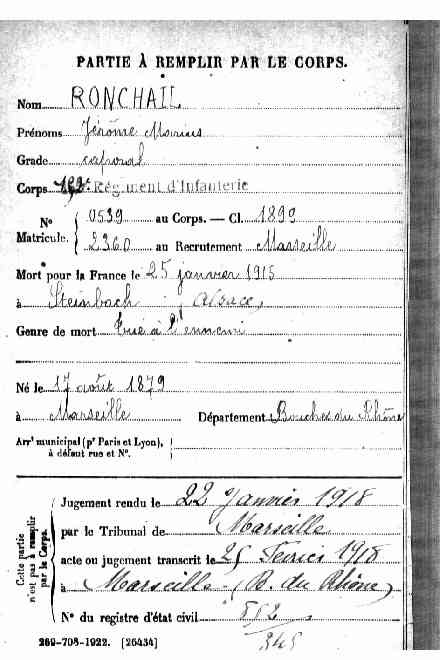 PARTIE À REMPLIR PAR LE CORPS.
Nom RONCHAIL
Prénoms Jérôme Marius
Grade caporal
Corps 152e Régiment d'Infanterie
N° Matricule. 0539 au Corps. — Cl. 1899
2360 au Recrutement Marseille
Mort pour la France le 25 janvier 1915
à Steinbach, Alsace,
Genre de mort Tué à l'ennemi
Né le 17 août 1879
à Marseille Département Bouches du Rhône
Arrt municipal (pr Paris et Lyon),
à défaut rue et N°.
Cette partie
n'est pas à remplir
par le Corps.
Jugement rendu le 22 Janvier 1918
par le Tribunal de Marseille
acte ou jugement transcrit le 25 Février 1918
à Marseille (B. du Rhône)
N° du registre d'état civil
269-708-1922. [26434]